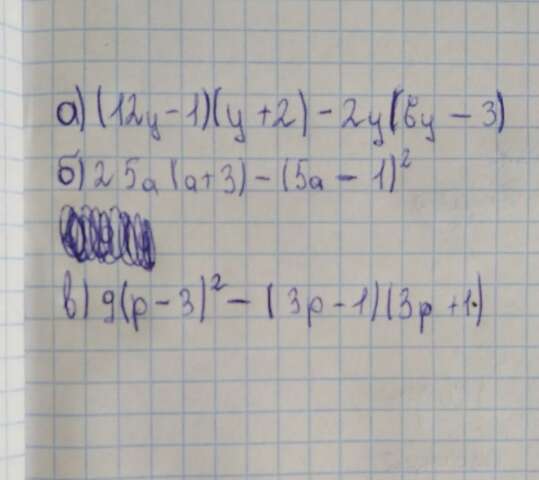 а) (12y-1)(y+2)-2y(6y-3)
б) 25a(a+3)-(5a-1)²
в) 9(p-3)²-(3p-1)(3p+1)